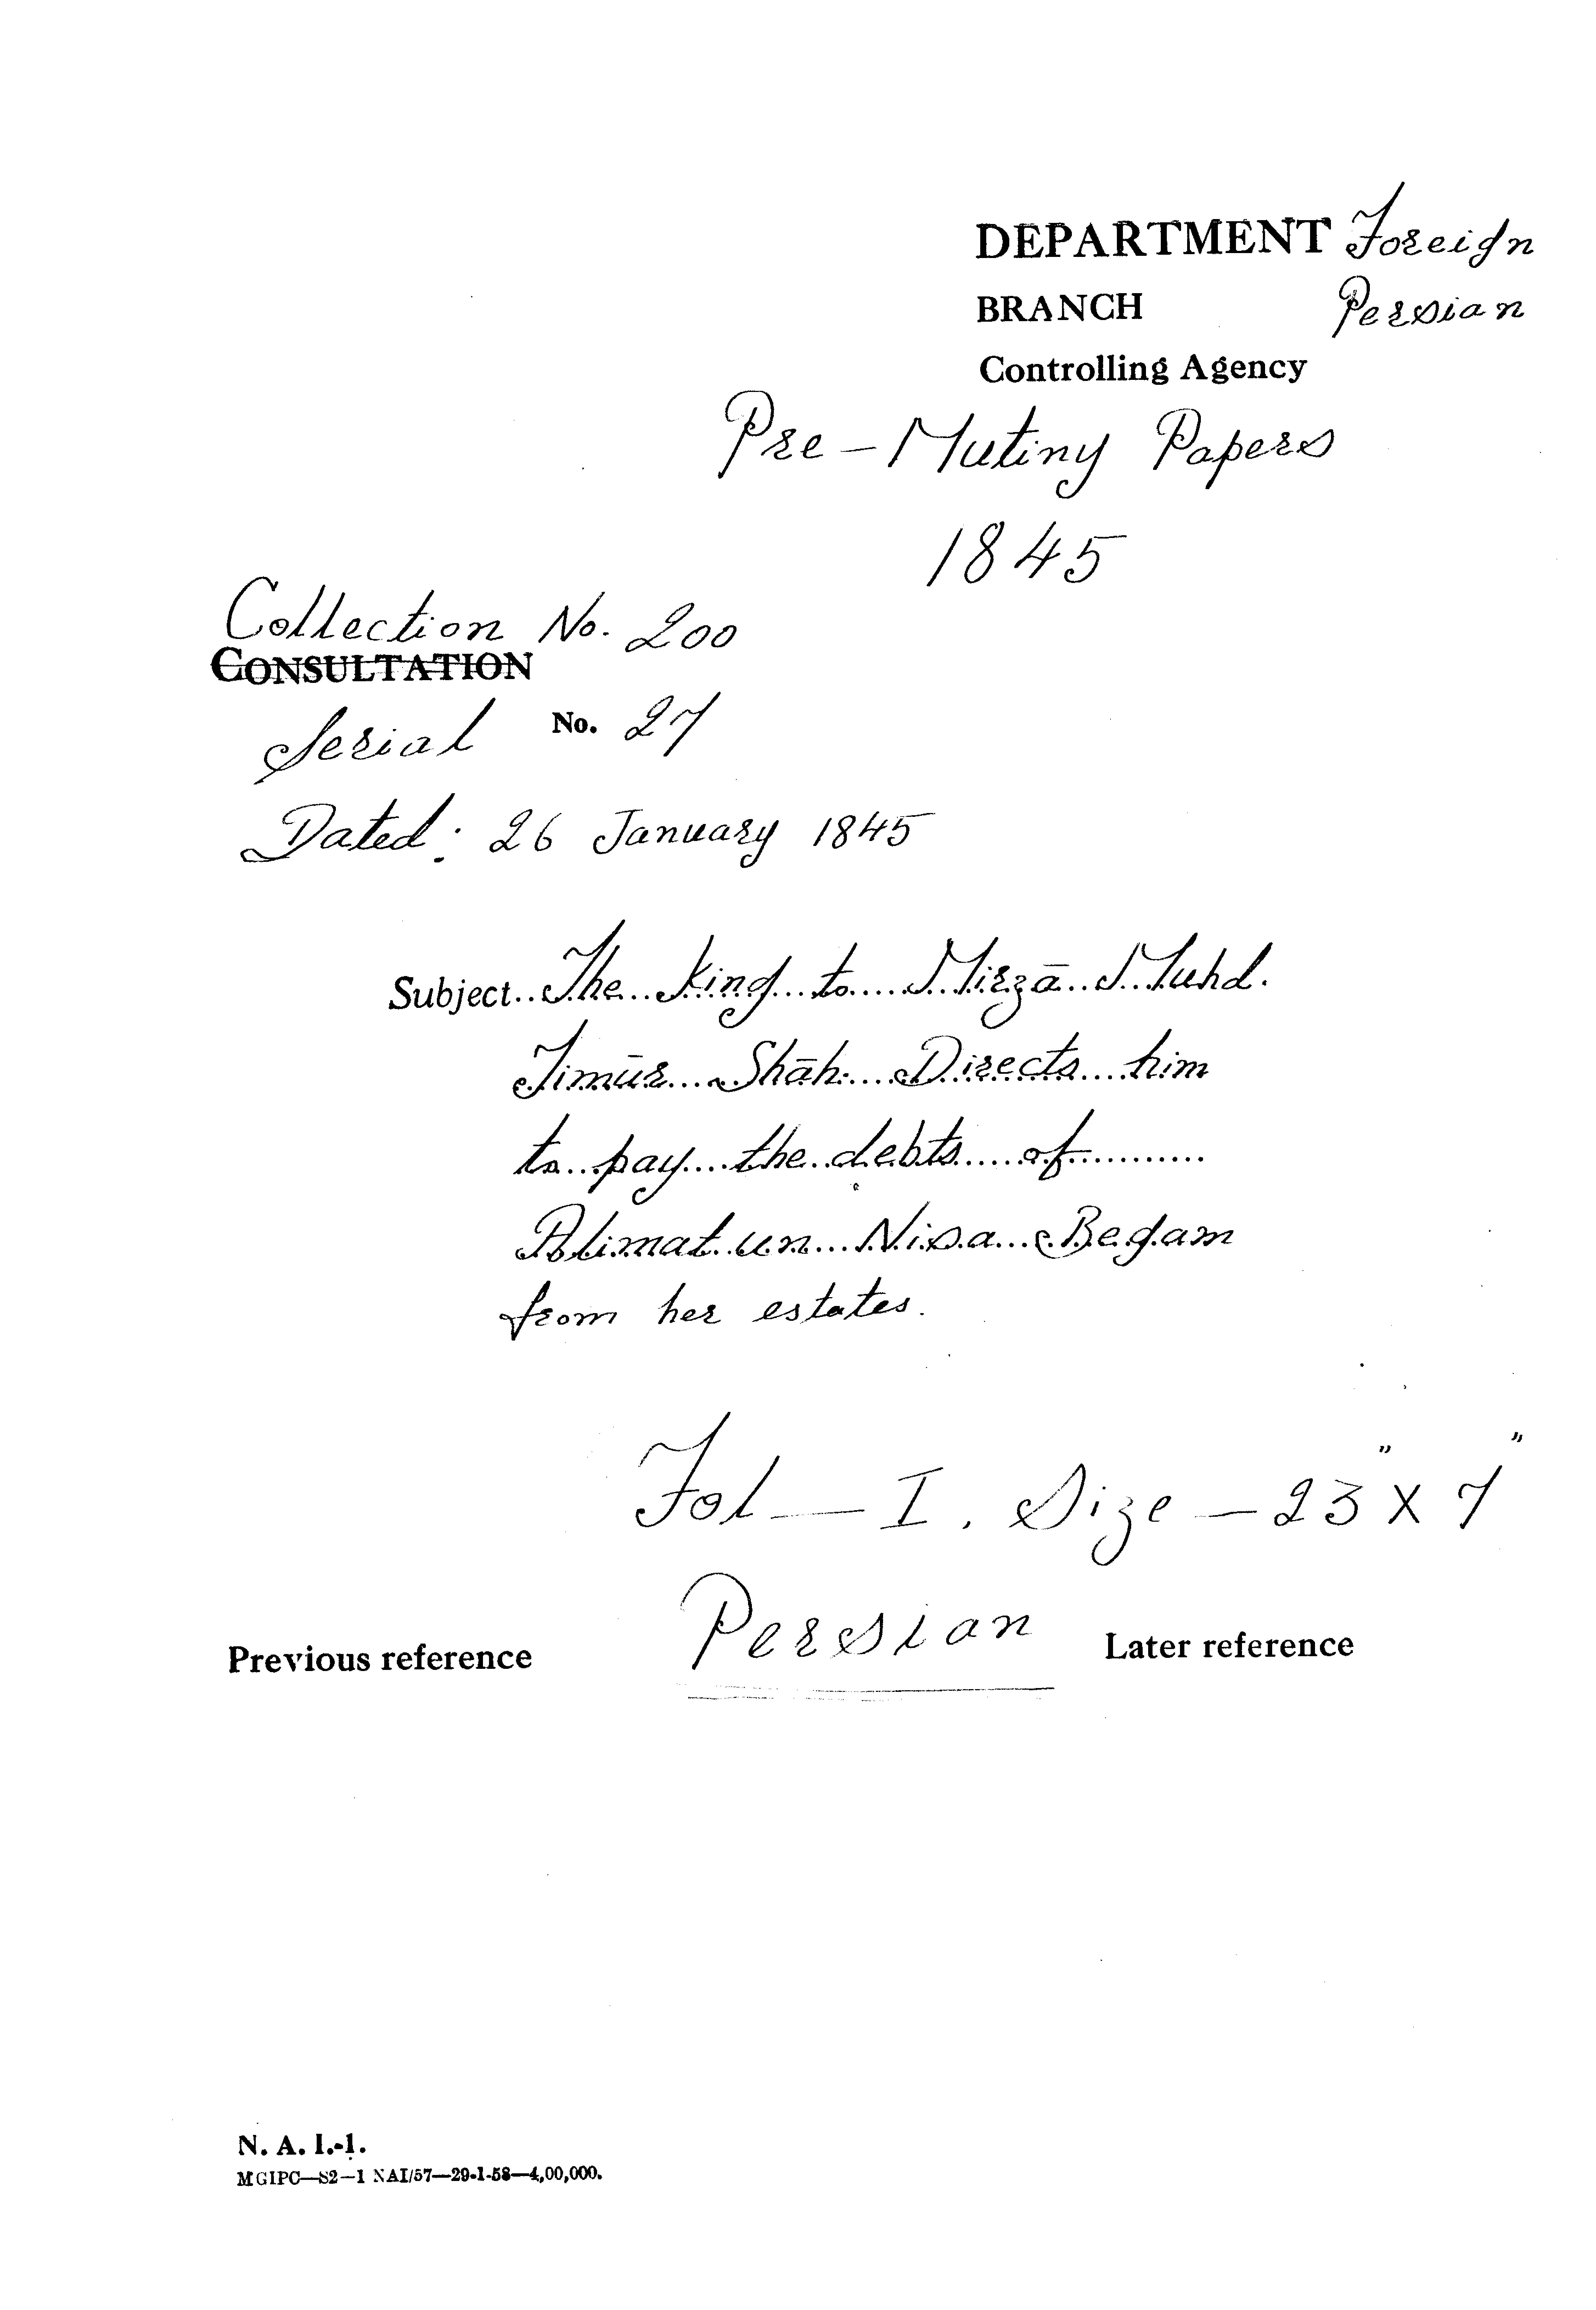 DEPARTMENT Foreign
BRANCH Persian
Controlling Agency
Pre-Mutiny Papers
1845
Collection No. 200
CONSULTATION
Serial No. 27
Dated: 26 January 1845
Subject..The...King...to....Mirzā..Muhd.
Timūr....Shāh....Directs....him
to...pay....the..debts.....of...........
Alimat.un...Nisa...Begam
from her estates.
Fol — I. Size — 23" X 7"
Persian
Previous reference Later reference
N. A. I.-1.
MGIPC—S2—1 NAI/57—29-1-58—4,00,000.